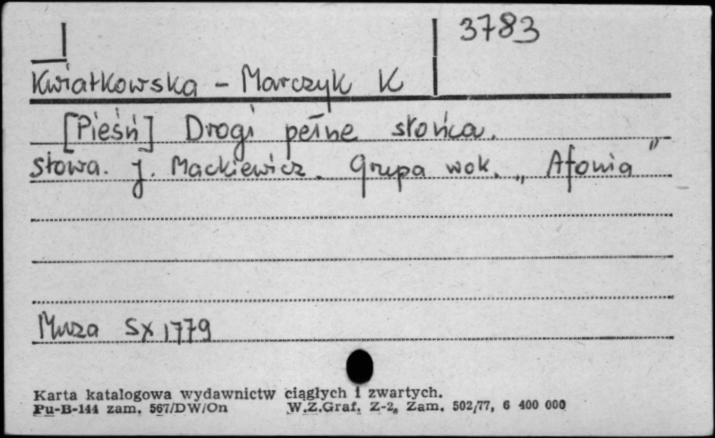 3783
Kwiatkowska - Marczyk K
[Pieśń] Drogi pełne słońca.
słowa. J. Mackiewicz. Grupa wok. „Afonia"
Muza SX 1779
Karta katalogowa wydawnictw ciągłych i zwartych.
Pu-B-144 zam. 567/DW/On W.Z.Graf. Z-2, Zam. 502/77, 6 400 000